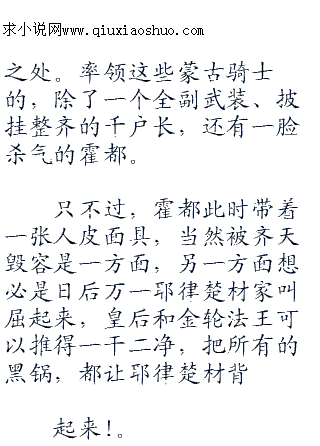 求小说网www.qiuxiaoshuo.com
之处。率领这些蒙古骑士
的，除了一个全副武装、披
挂整齐的千户长，还有一脸
杀气的霍都。
只不过，霍都此时带着
一张人皮面具，当然被齐天
毁容是一方面，另一方面想
必是日后万一耶律楚材家叫
屈起来，皇后和金轮法王可
以推得一干二净，把所有的
黑锅，都让耶律楚材背
起来！。